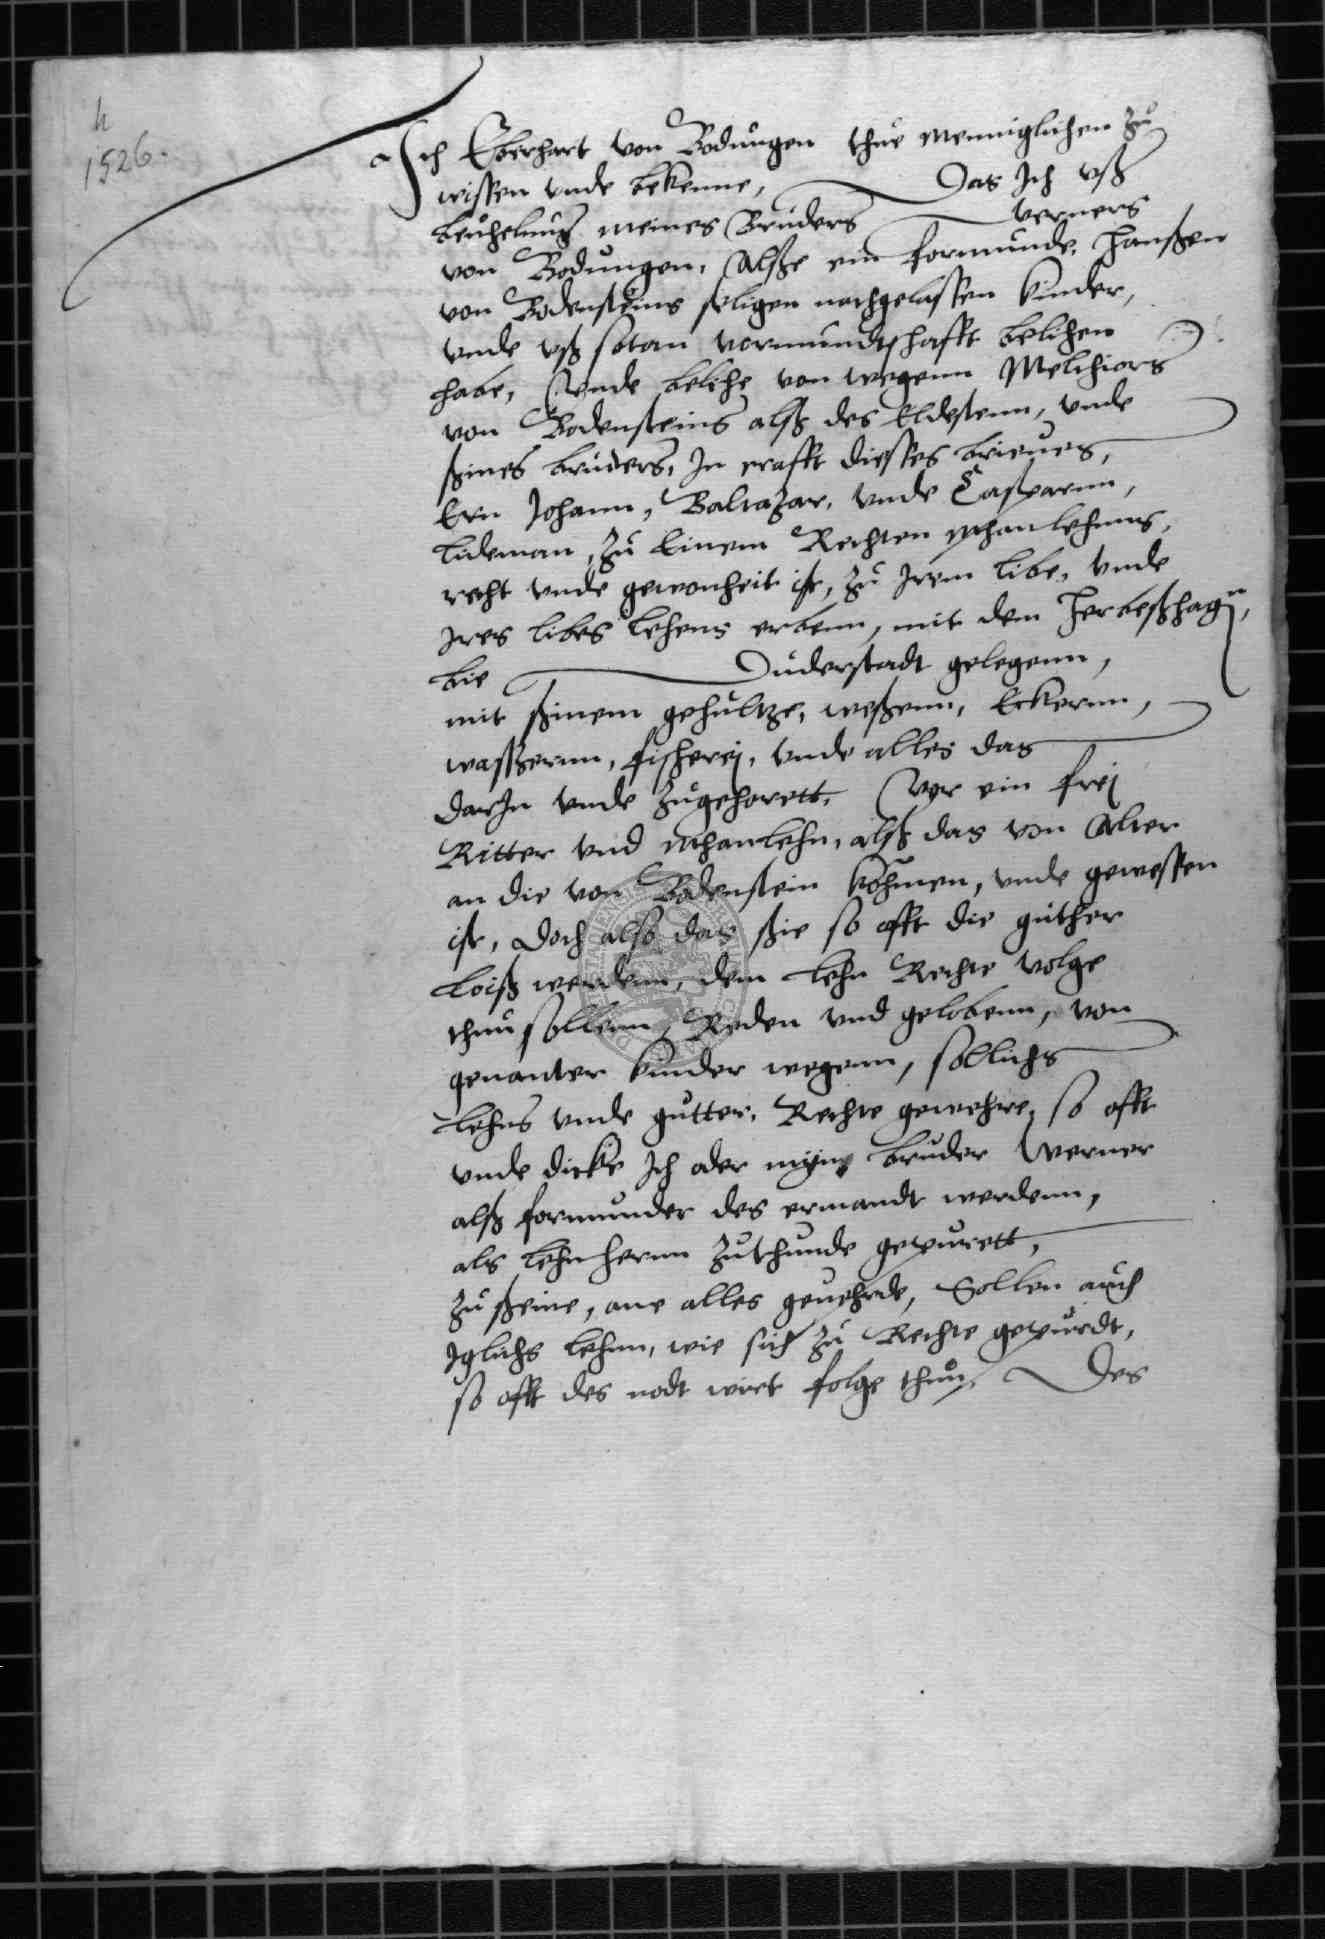 h
1526.
Ich Eberhart von Bodungen thue menniglichen zu
wissen vnde bekenne, Das Ich vß
beuhelung meines Bruders verners
von Bodungen, Alße ein formunde, Hanßen
von Bodensteins seligen nachgelassen kinder,
vnde vß sotan vormundtschafft belihen
habe, Vnde belihe von wegenn Melchiors
von Bodensteins alß des Eldestenn, vnde
ßines bruders, In crafft diesses brieues,
Ern Johann, Baltazar, vnde Casparnn,
tideman, zu Einem Rechten Manlehnns,
recht vnde gewonheit ist, zu Irem libe, vnde
Ires libes lehens erbenn, mit dem Herbeßhagn,
bie Duderstadt gelegenn,
mit ßinem gehultze, weßenn, Eckernn,
waßßernn, fischerej, vnde alles das
darIn vnde zugehorett, Vor ein frej
Ritter vnd Manlehn, alß das von Alter
an die von Bodenstein kohmen, vnde gewessen
ist, Doch also das ßie so offt die guther
loiß werdenn, dem lehn Rechte volge
thun sollenn, Reden vnd gelobenn, von
genanter kinder wegenn, sollichs
lehns vnde gutter, Rechte gewehre, so offt
vnde dicke Ich oder bruder Werner
alß formunder des ermandt werdenn,
als lehnhernn zuthunde gepurett,
zu ßeine, ane alles geuehrde, Sollen auch
Iglichs lehnn, wie sich zu Rechte gepurdt,
so offt des nodt wirt folge thun, Des